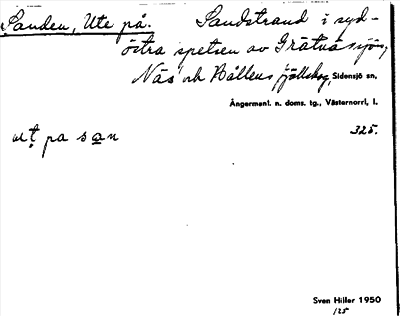 Sanden, Ute på. Sandstrand i syd-
östra spetsen av Grätnässjön,
Näs och Bölens fjällskog, Sidensjö sn,
Ångermanl. n. doms. tg., Västernorrl, l.
ut pa san 325.
Sven Hiller 1950
125